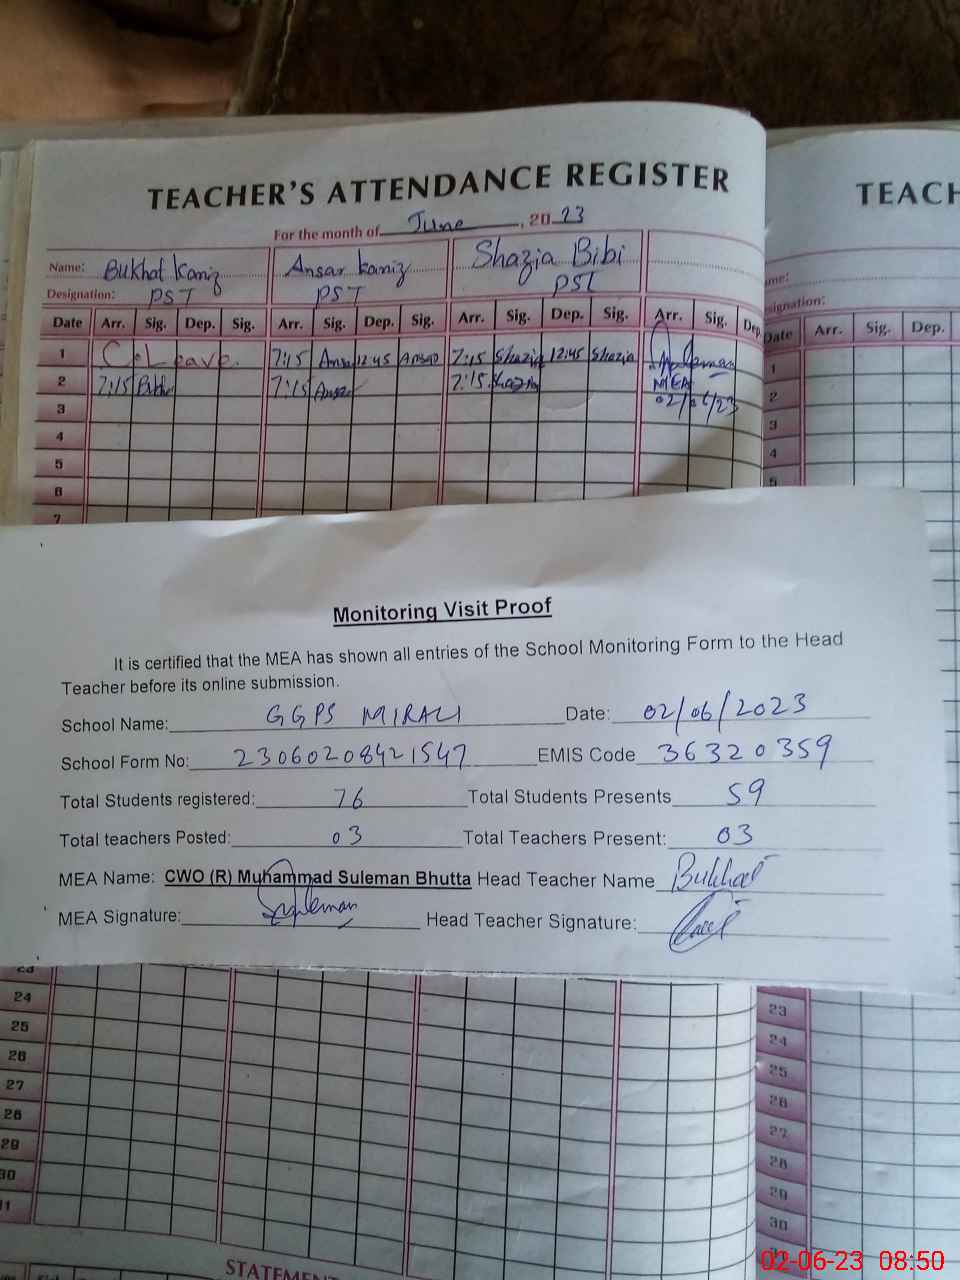 TEACHER'S ATTENDANCE REGISTER
For the month of June, 2023
Name: Bukhat Kaniz Ansar kaniz Shazia Bibi
Designation: PST PST PST
Date Arr. Sig. Dep. Sig. Arr. Sig. Dep. Sig. Arr. Sig. Dep. Sig. Arr. Sig. Dep.
1 C. Leave. 7:15 Ansar 12:45 Ansar 7:15 Shazia 12:45 Shazia Suleman
2 7:15 Bukhat 7:15 Ansar 7:15 Shazia MEA
3 02/06/23
4
5
6
7
TEACH
me:
signation:
Date Arr. Sig. Dep.
1
2
3
4
5
Monitoring Visit Proof
It is certified that the MEA has shown all entries of the School Monitoring Form to the Head
Teacher before its online submission.
School Name: GGPS MIRALI Date: 02/06/2023
School Form No: 23060208421547 EMIS Code 36320359
Total Students registered: 76 Total Students Presents 59
Total teachers Posted: 03 Total Teachers Present: 03
MEA Name: CWO (R) Muhammad Suleman Bhutta Head Teacher Name Bukhat
MEA Signature: Suleman Head Teacher Signature:
23
24
25
26
27
28
29
30
31
23
24
25
26
27
28
29
30
STATEMENT
02-06-23 08:50